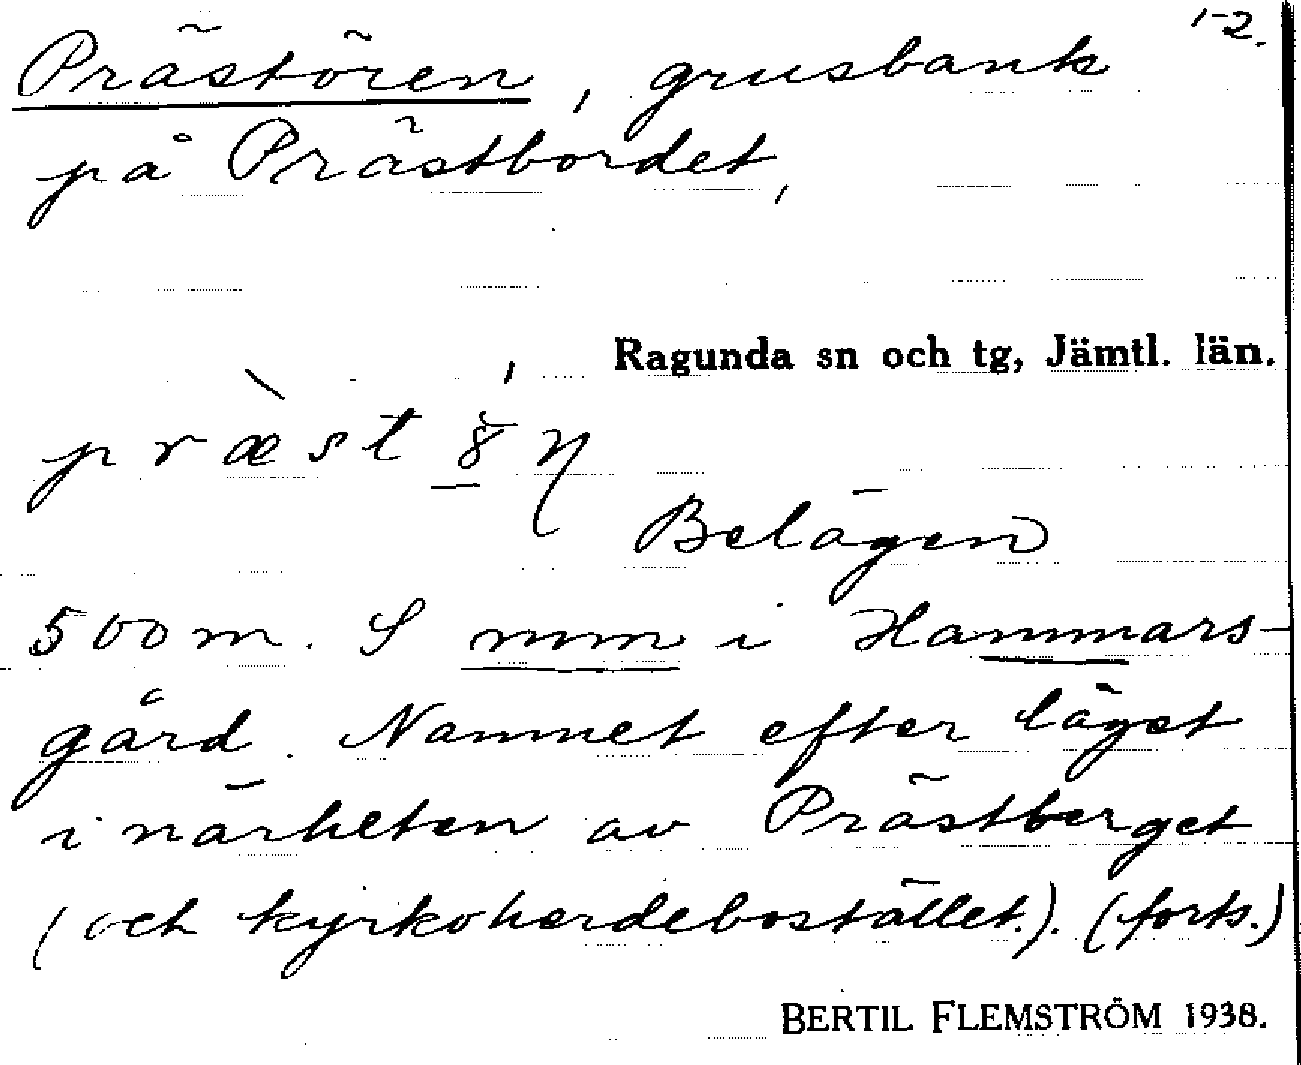 1-2.
Prästören, grusbank
på Prästbordet,
Ragunda sn och tg, Jämtl. län.
Belägen
500 m. S mm i Hammars-
gård. Namnet efter läget
i närheten av Prästberget
(och kyrkoherdebostället.). (forts.)
BERTIL FLEMSTRÖM 1938.